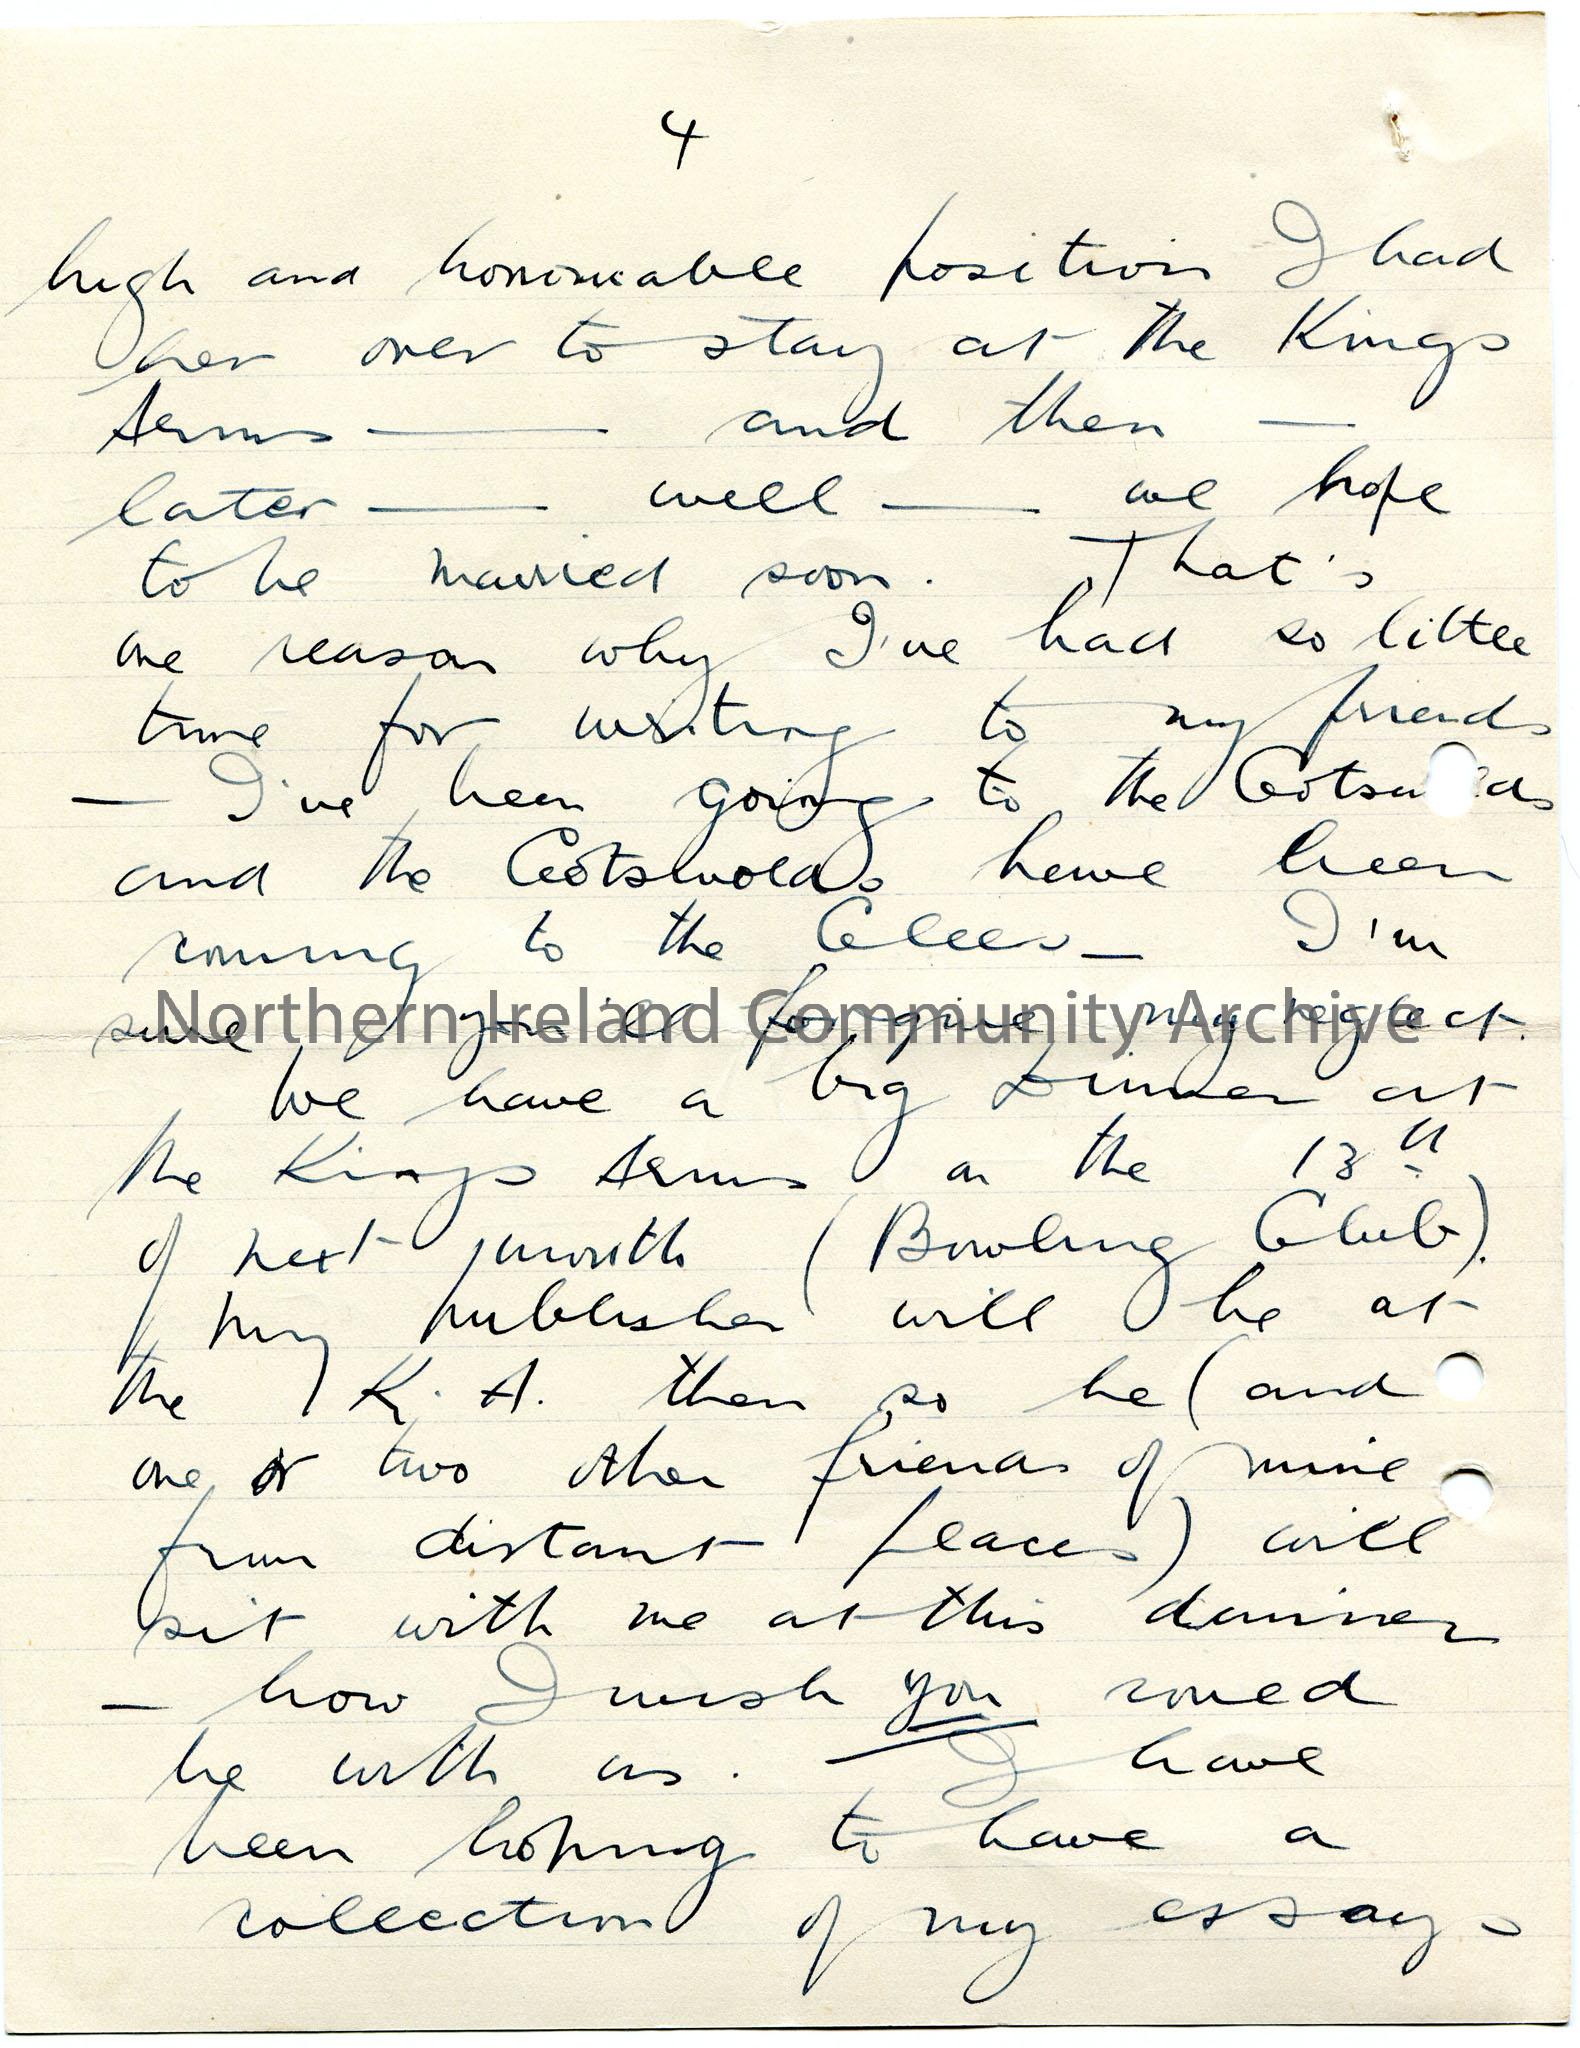 4
high and honourable position I had
her over to stay at the Kings
Arms — and then —
later — well — we hope
to be married soon. That's
one reason why I've had so little
time for writing to my friends
— I've been going to the Cotswolds
and the Cotswolds have been
coming to the Clees — I'm
sure you'll forgive my neglect.
We have a big Dinner at
the Kings Arms on the 13th
of next month (Bowling Club).
My publisher will be at
the K. A. then so he (and
one or two other friends of mine
from distant places) will
sit with me at this dinner
— how I wish you could
be with us. — I have
been hoping to have a
collection of my essays
Northern Ireland Community Archive